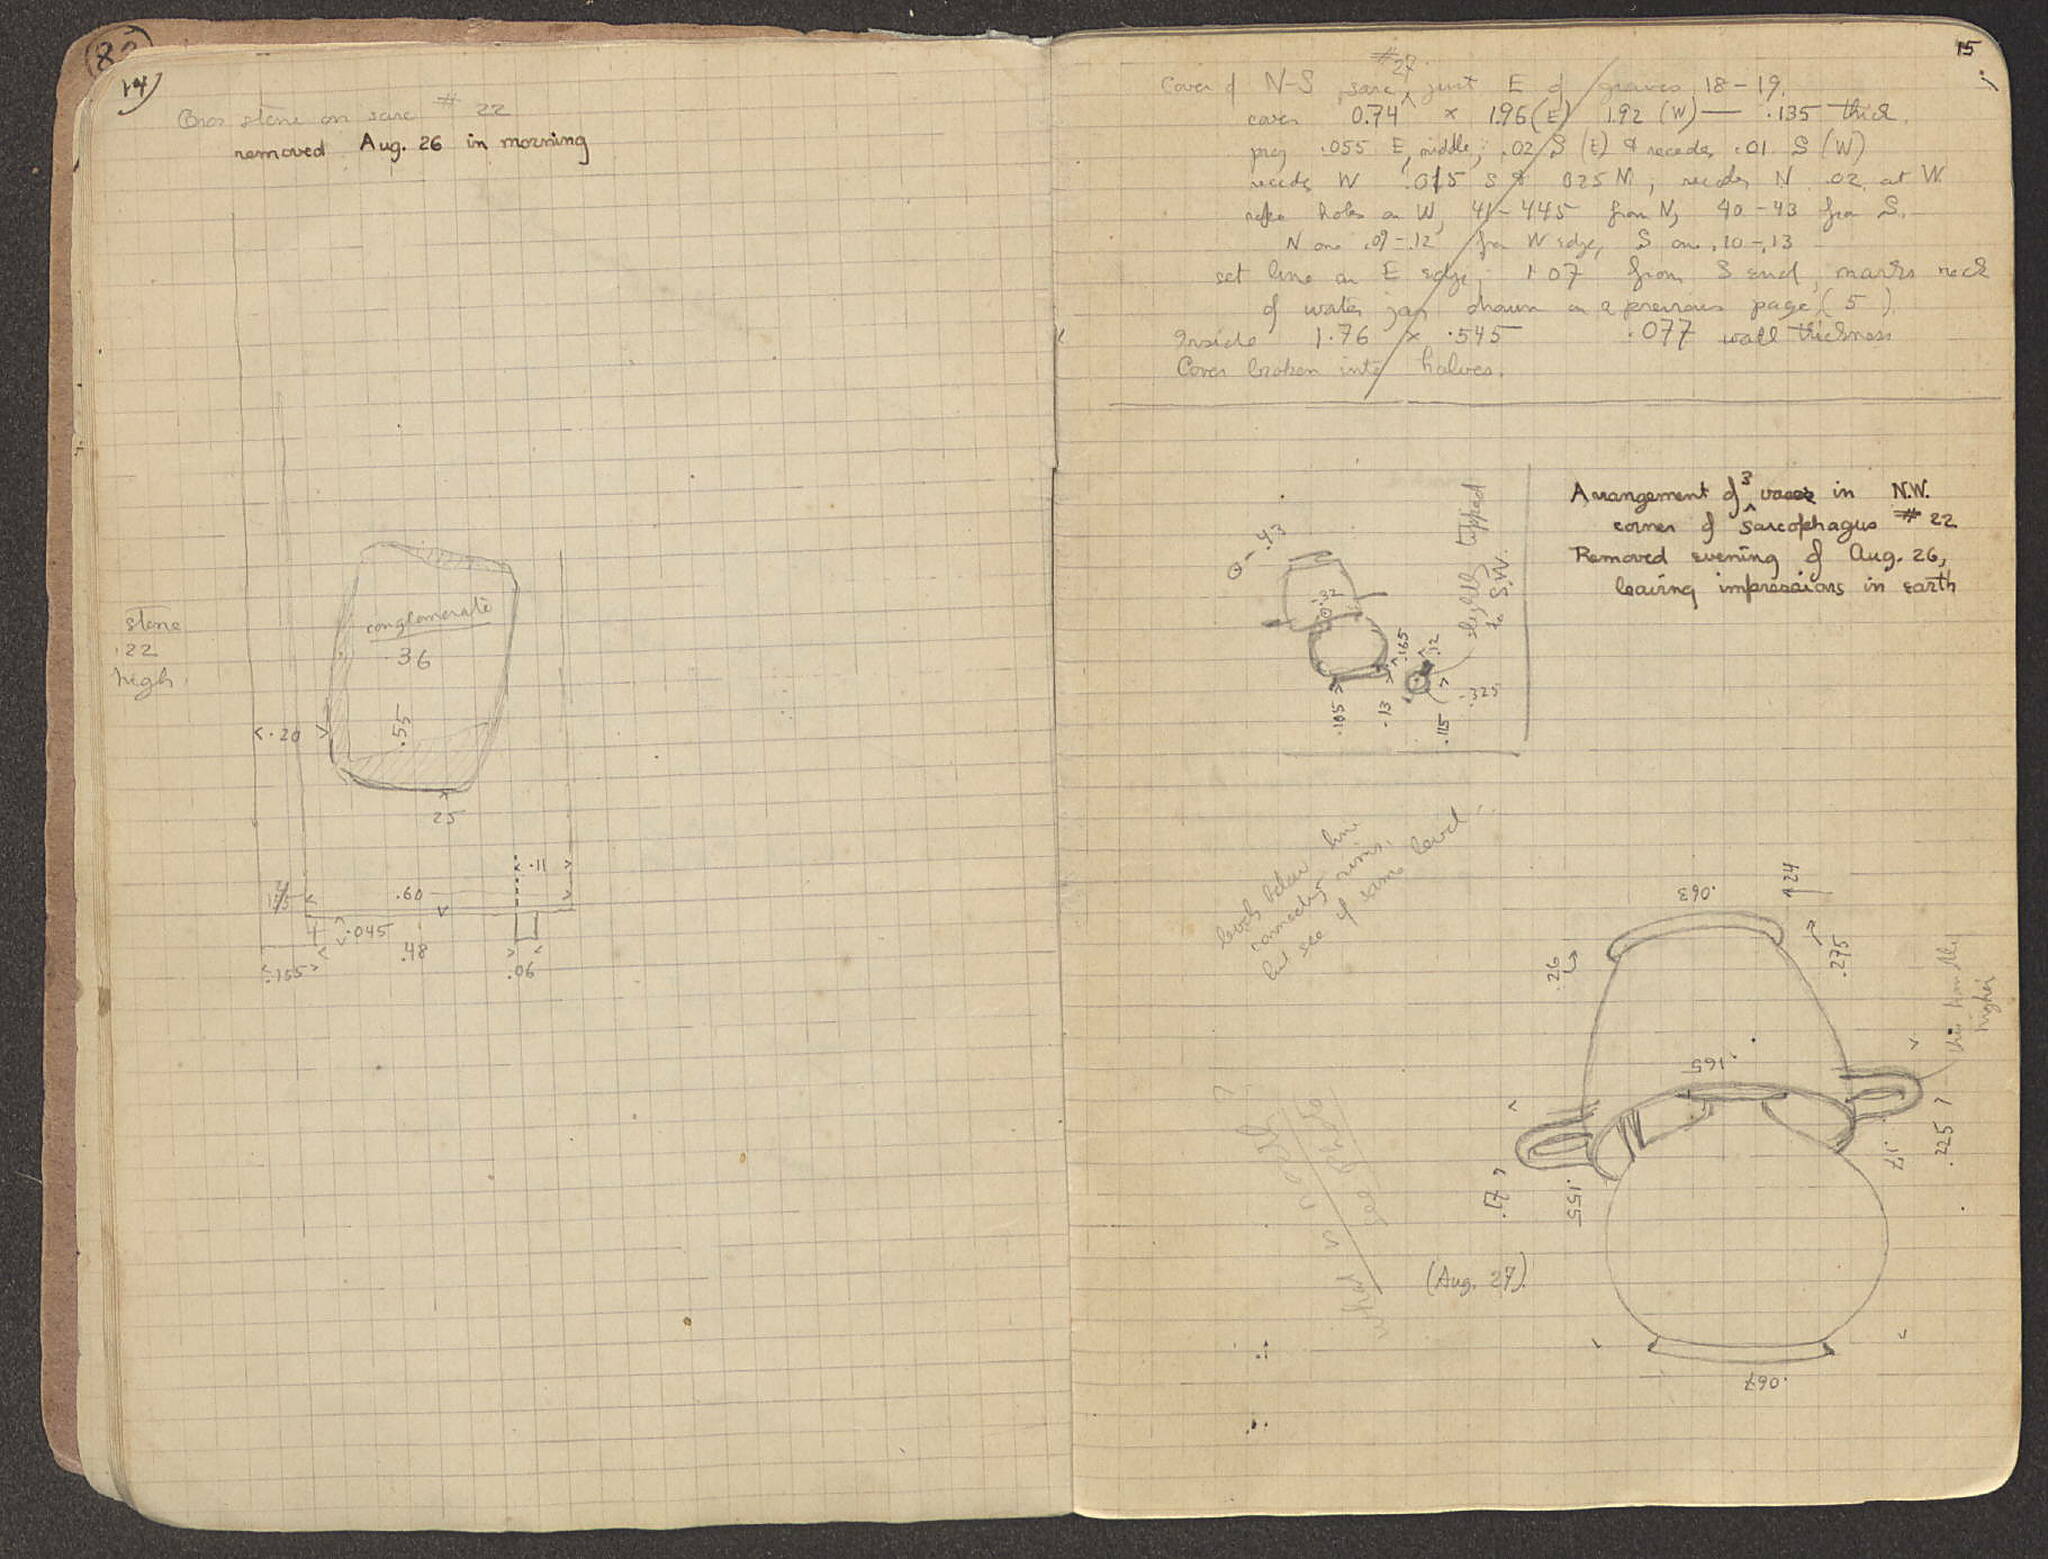 14
stone on sarc # 22
removed Aug. 26 in morning
conglomerate
.36
.55
stone
.22
high
.20
25
.11
.60
.045
.48
.155
.06
15
#27
Cover of N-S sarc, just E of graves 18-19.
cover 0.74 x 1.96 (E) 1.92 (W) — .135 thick.
proj .055 E, middle; .02 S (E) & recedes .01 S (W)
recedes W .015 S & 025 N; recedes N .02 at W
rope holes on W, 41-445 from N, 40-43 from S.
N one .09-.12 from W edge, S one .10-.13
set line on E edge, 1.07 from S end, marks neck
of water jar drawn on a previous page (5).
Inside 1.76 x .545 .077 wall thickness
Cover broken into halves.
Arrangement of 3 vases in N.W.
corner of sarcophagus # 22
Removed evening of Aug. 26,
leaving impressions in earth
slightly tipped
to S.W.
.43
.32
.165
.12
.325
.105
.13
.115
levels below line
connecting rims,
but see if same level
.063
24
.26
.275
this handle
higher
.165
.17
.155
.17
.225
(Aug. 27).
.067